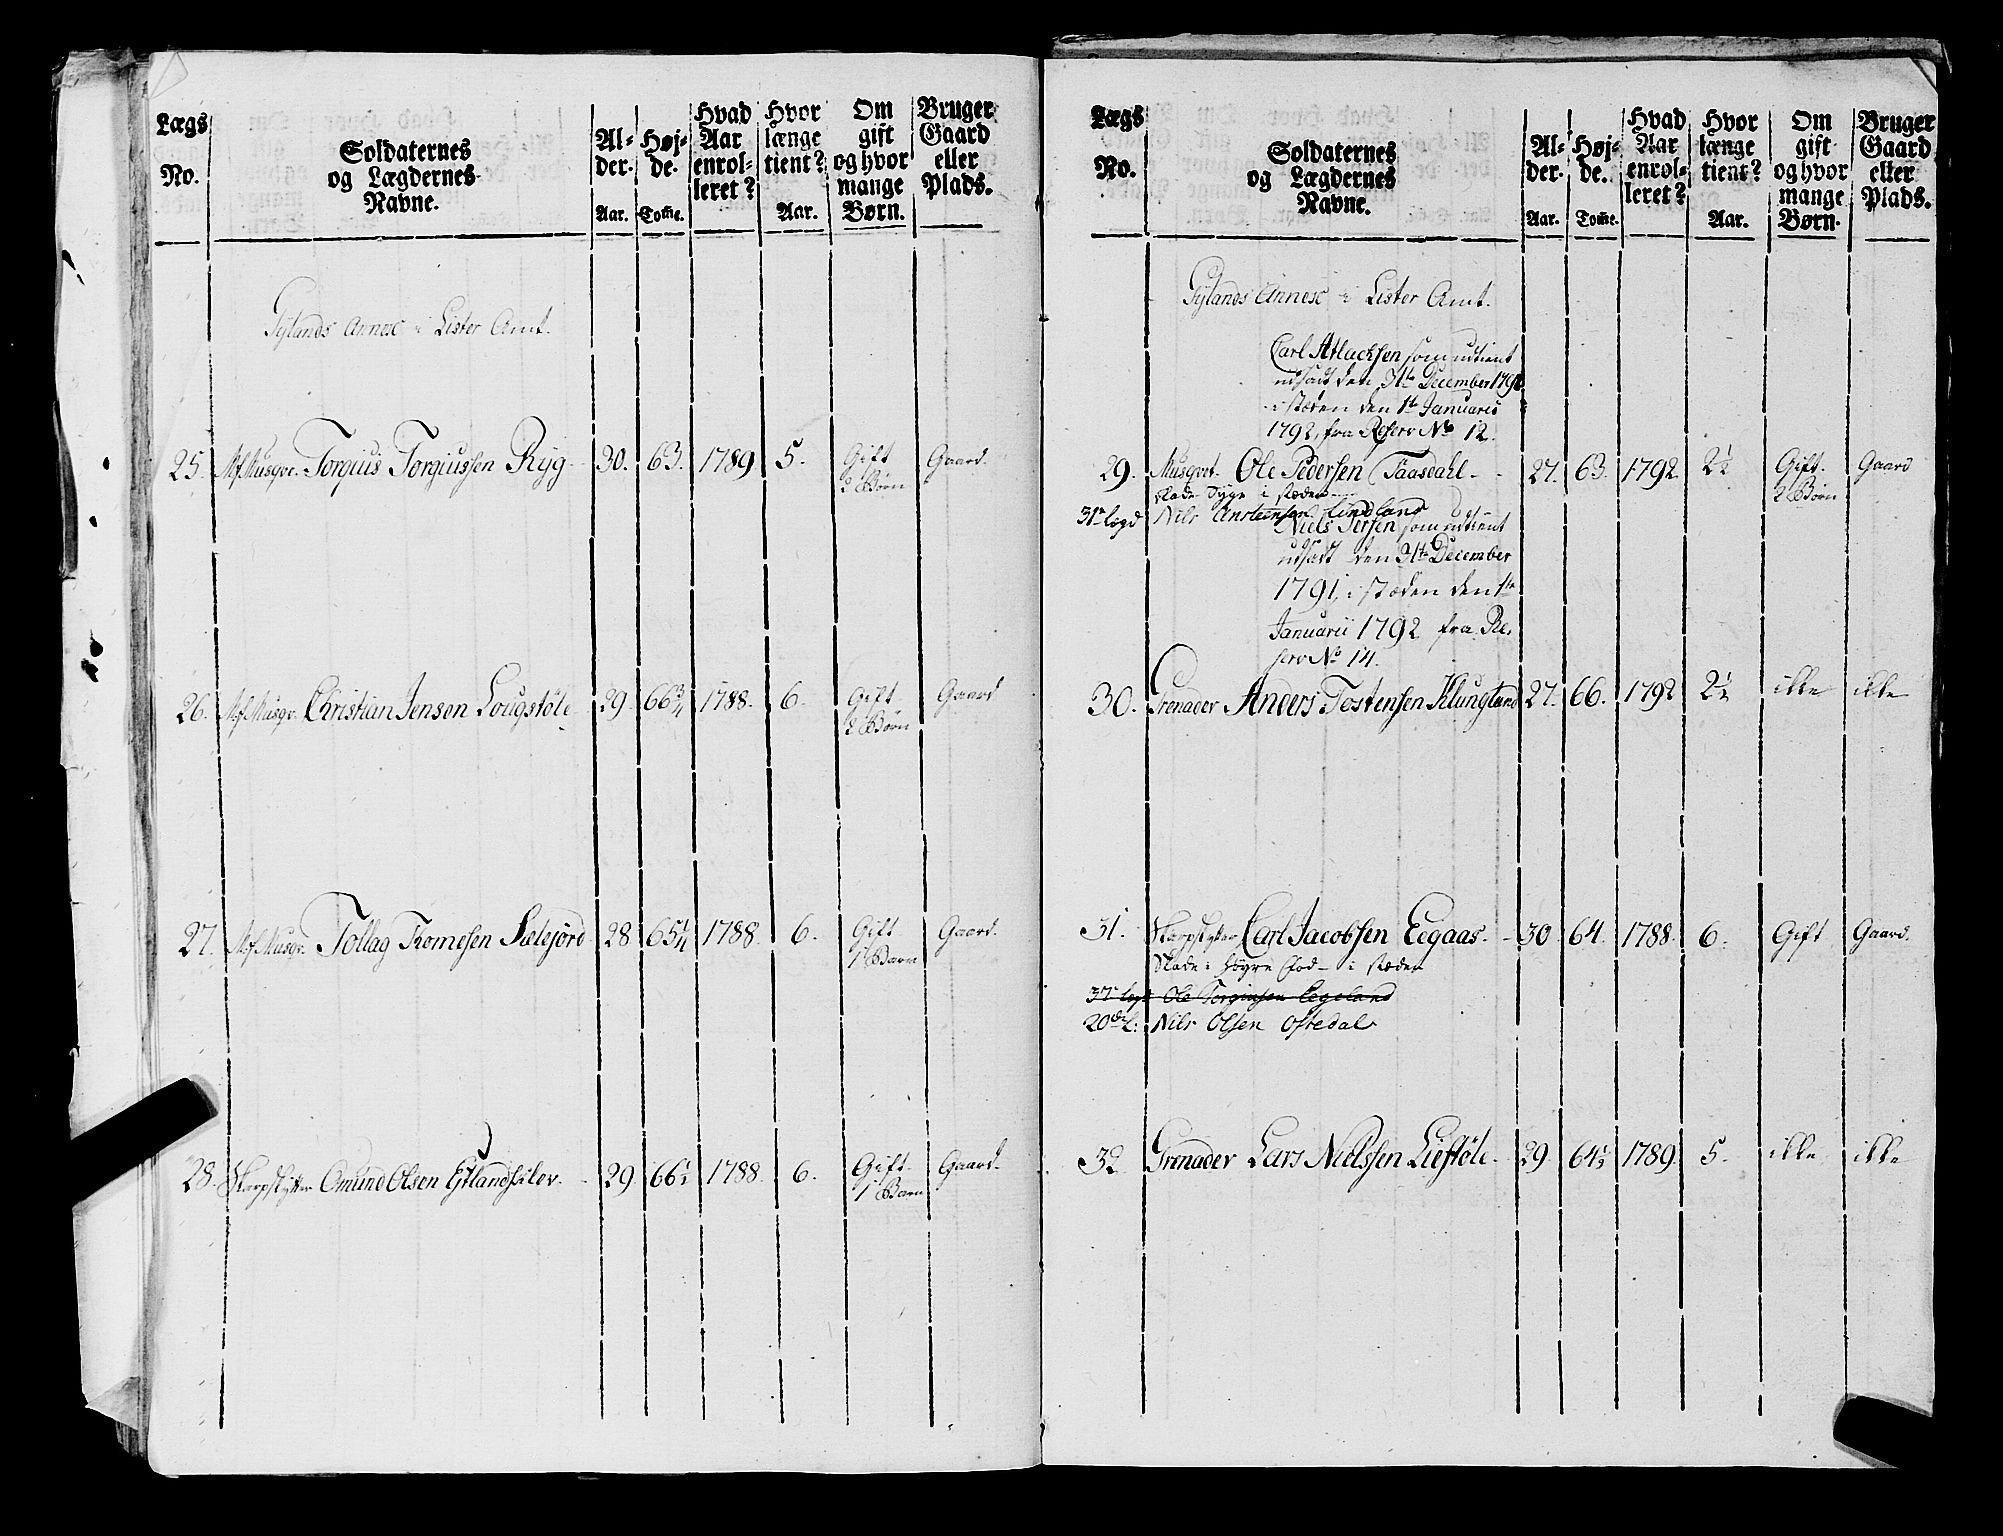 Lægs No. | Soldaternes og Lægdernes Navne. | Al-der. Aar. | Høj-de. Tom̄e. | Hvad Aar enrol-leret? | Hvor længe tient? Aar. | Om gift og hvor mange Børn. | Bruger Gaard eller Plads.
Gylands Annex i Lister Amt.
25. Mf. Musqvr. Torgius Torgiussen Ryg 30. 63. 1789 5. Gift Gaard.
2 Børn
26. Mf. Musqr. Christian Jensen Lougstöle 29. 66 3/4 1788. 6. Gift Gaard
2 Børn
27. Mf. Musqr. Tollag Tomesen Sælejörd 28. 65 1/4 1788. 6. Gift Gaard.
1 Barn
28. Skarpskytter Omund Olsen 29 1788. 6. Gift Gaard.
1 Barn
Lægs No. | Soldaternes og Lægdernes Navne. | Al-der. Aar. | Høj-de. Tom̄e. | Hvad Aar enrol-leret? | Hvor længe tient? Aar. | Om gift og hvor mange Børn. | Bruger Gaard eller Plads.
Gylands Annex i Lister Amt.
Carl Atlachsen som udtient
udsadt den 31te December 1791
i stæden den 1te Januarii
1792, fra Reserv No 12.
29. Musqvet. Ole Pedersen Taasdahl 27. 63. 1792 2 1/2 Gift. Gaard
2 Børn
skade Syge i stæden
31te lægd Nils Ansteensen Lindland
Niels Persen som udtient
udsadt den 31te December
1791, i stæden den 1te
Januarii 1792 fra Re-
serv No 14.
30. Grenader Anders Testensen Klungland 27. 66. 1792 2 1/2 ikke ikke
31. Skarpskytter Carl Jacobsen Eegaas. 30 64. 1788. 6. Gift Gaard.
Skade i höyre Fod - i stæden
37te lægd Ole Torginsen Eegeland
20de L: Nils Olsen Ostedal
32 Grenader Lars Nielssen Liestöle 29. 64 1/2 1789. 5. ikke ikke